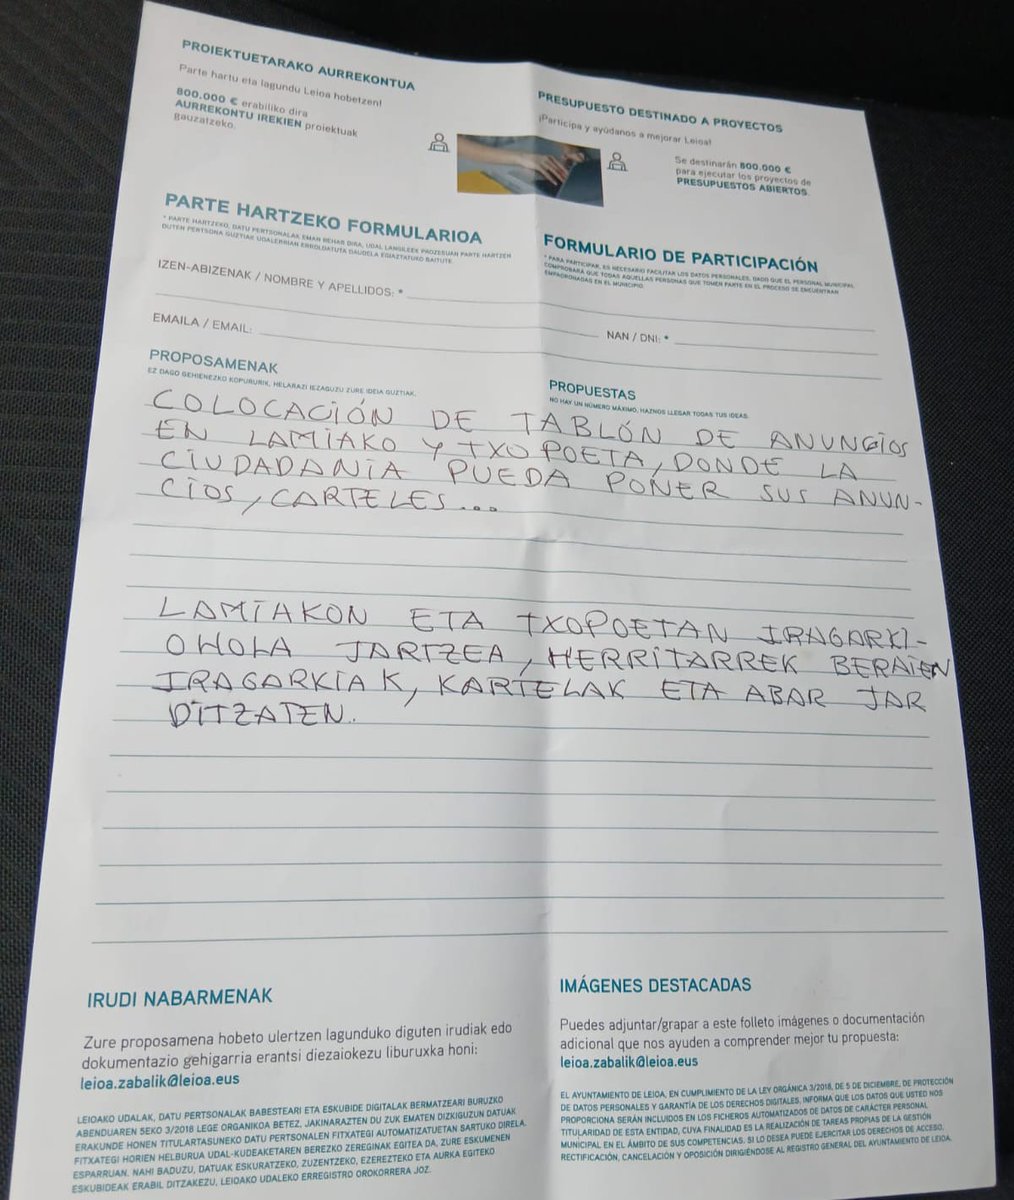 PROIEKTUETARAKO AURREKONTUA
Parte hartu eta lagundu Leioa hobetzen!
800.000 € erabiliko dira
AURREKONTU IREKIEN proiektuak
gauzatzeko.
PRESUPUESTO DESTINADO A PROYECTOS
¡Participa y ayúdanos a mejorar Leioa!
Se destinarán 800.000 €
para ejecutar los proyectos de
PRESUPUESTOS ABIERTOS.
PARTE HARTZEKO FORMULARIOA
* PARTE HARTZEKO, DATU PERTSONALAK EMAN BEHAR DIRA, UDAL LANGILEEK PROZESUAN PARTE HARTZEN
DUTEN PERTSONA GUZTIAK UDALERRIAN ERROLDATUTA DAUDELA EGIAZTATUKO BAITUTE
FORMULARIO DE PARTICIPACIÓN
* PARA PARTICIPAR, ES NECESARIO FACILITAR LOS DATOS PERSONALES, DADO QUE EL PERSONAL MUNICIPAL
COMPROBARÁ QUE TODAS AQUELLAS PERSONAS QUE TOMEN PARTE EN EL PROCESO SE ENCUENTRAN
EMPADRONADAS EN EL MUNICIPIO.
IZEN-ABIZENAK / NOMBRE Y APELLIDOS: *
EMAILA / EMAIL:
NAN / DNI: *
PROPOSAMENAK
EZ DAGO GEHIENEZKO KOPURURIK, HELARAZI IEZAGUZU ZURE IDEIA GUZTIAK.
PROPUESTAS
NO HAY UN NÚMERO MÁXIMO, HAZNOS LLEGAR TODAS TUS IDEAS.
COLOCACIÓN DE TABLÓN DE ANUNCIOS
EN LAMIAKO Y TXOPOETA, DONDE LA
CIUDADANIA PUEDA PONER SUS ANUN-
CIOS, CARTELES...
LAMIAKON ETA TXOPOETAN IRAGARKI-
OHOLA JARTZEA, HERRITARREK BERAIEN
IRAGARKIAK, KARTELAK ETA ABAR JAR
DITZATEN.
IRUDI NABARMENAK
Zure proposamena hobeto ulertzen lagunduko diguten irudiak edo
dokumentazio gehigarria erantsi diezaiokezu liburuxka honi:
leioa.zabalik@leioa.eus
IMÁGENES DESTACADAS
Puedes adjuntar/grapar a este folleto imágenes o documentación
adicional que nos ayuden a comprender mejor tu propuesta:
leioa.zabalik@leioa.eus
LEIOAKO UDALAK, DATU PERTSONALAK BABESTEARI ETA ESKUBIDE DIGITALAK BERMATZEARI BURUZKO
ABENDUAREN 5EKO 3/2018 LEGE ORGANIKOA BETEZ, JAKINARAZTEN DU ZUK EMATEN DIZKIGUZUN DATUAK
ERAKUNDE HONEN TITULARTASUNEKO DATU PERTSONALEN FITXATEGI AUTOMATIZATUETAN SARTUKO DIRELA.
FITXATEGI HORIEN HELBURUA UDAL-KUDEAKETAREN BEREZKO ZEREGINAK EGITEA DA, ZURE ESKUMENEN
ESPARRUAN. NAHI BADUZU, DATUAK ESKURATZEKO, ZUZENTZEKO, EZEREZTEKO ETA AURKA EGITEKO
ESKUBIDEAK ERABIL DITZAKEZU, LEIOAKO UDALEKO ERREGISTRO OROKORRERA JOZ.
EL AYUNTAMIENTO DE LEIOA, EN CUMPLIMIENTO DE LA LEY ORGÁNICA 3/2018, DE 5 DE DICIEMBRE, DE PROTECCIÓN
DE DATOS PERSONALES Y GARANTÍA DE LOS DERECHOS DIGITALES, INFORMA QUE LOS DATOS QUE USTED NOS
PROPORCIONA SERÁN INCLUIDOS EN LOS FICHEROS AUTOMATIZADOS DE DATOS DE CARÁCTER PERSONAL
TITULARIDAD DE ESTA ENTIDAD, CUYA FINALIDAD ES LA REALIZACIÓN DE TAREAS PROPIAS DE LA GESTIÓN
MUNICIPAL EN EL ÁMBITO DE SUS COMPETENCIAS. SI LO DESEA PUEDE EJERCITAR LOS DERECHOS DE ACCESO,
RECTIFICACIÓN, CANCELACIÓN Y OPOSICIÓN DIRIGIÉNDOSE AL REGISTRO GENERAL DEL AYUNTAMIENTO DE LEIOA.